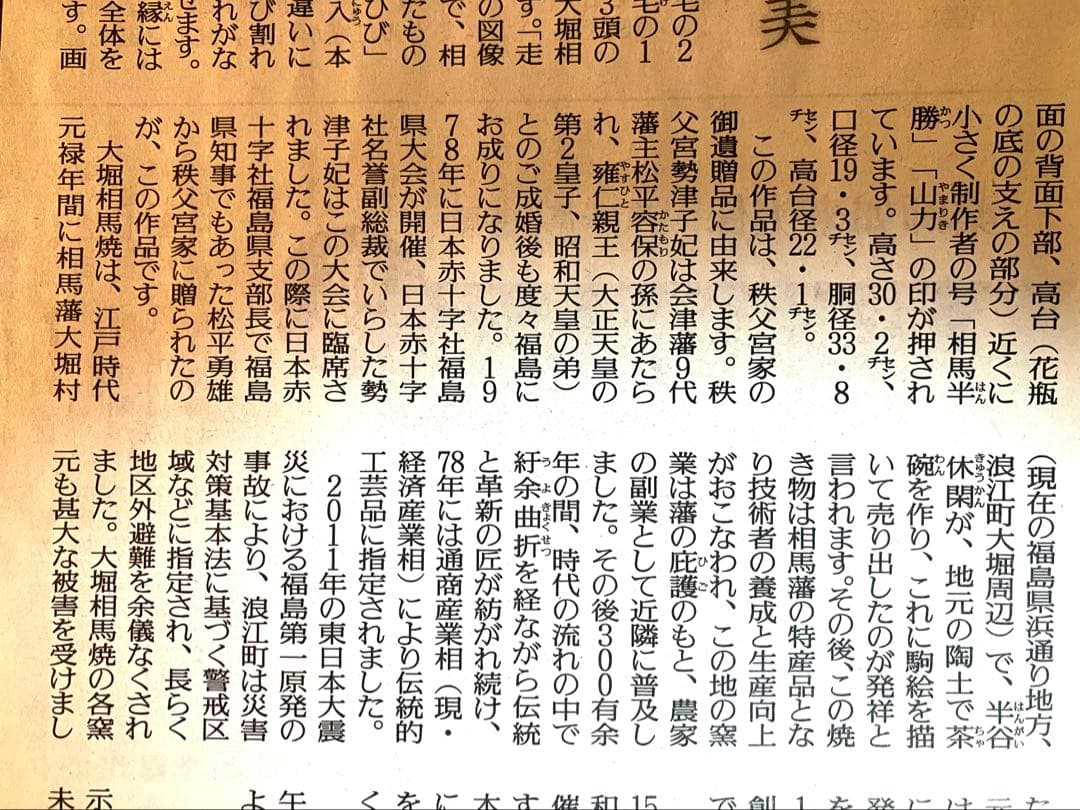 美
毛の2
毛の1
3頭の
大堀相
す。「走
の図像
で、相
たもの
ひび」
入(本
違いに
び割れ
れがな
せます。
縁には
全体を
す。画
面の背面下部、高台(花瓶
の底の支えの部分)近くに
小さく制作者の号「相馬半
勝」「山力」の印が押され
ています。高さ30・2㌢、
口径19・3㌢、胴径33・8
㌢、高台径22・1㌢。
この作品は、秩父宮家の
御遺贈品に由来します。秩
父宮勢津子妃は会津藩9代
藩主松平容保の孫にあたら
れ、雍仁親王(大正天皇の
第2皇子、昭和天皇の弟)
とのご成婚後も度々福島に
お成りになりました。19
78年に日本赤十字社福島
県大会が開催、日本赤十字
社名誉副総裁でいらした勢
津子妃はこの大会に臨席さ
れました。この際に日本赤
十字社福島県支部長で福島
県知事でもあった松平勇雄
から秩父宮家に贈られたの
が、この作品です。
大堀相馬焼は、江戸時代
元禄年間に相馬藩大堀村
(現在の福島県浜通り地方、
浪江町大堀周辺)で、半谷
休閑が、地元の陶土で茶
碗を作り、これに駒絵を描
いて売り出したのが発祥と
言われます。その後、この焼
き物は相馬藩の特産品とな
り技術者の養成と生産向上
がおこなわれ、この地の窯
業は藩の庇護のもと、農家
の副業として近隣に普及し
ました。その後300有余
年の間、時代の流れの中で
紆余曲折を経ながら伝統
と革新の匠が紡がれ続け、
78年には通商産業相(現・
経済産業相)により伝統的
工芸品に指定されました。
2011年の東日本大震
災における福島第一原発の
事故により、浪江町は災害
対策基本法に基づく警戒区
域などに指定され、長らく
地区外避難を余儀なくされ
ました。大堀相馬焼の各窯
元も甚大な被害を受けまし
た
元
は
に
発
を
1
創
で
15
和
催
す
本
に
を
く
午
よ
示
未